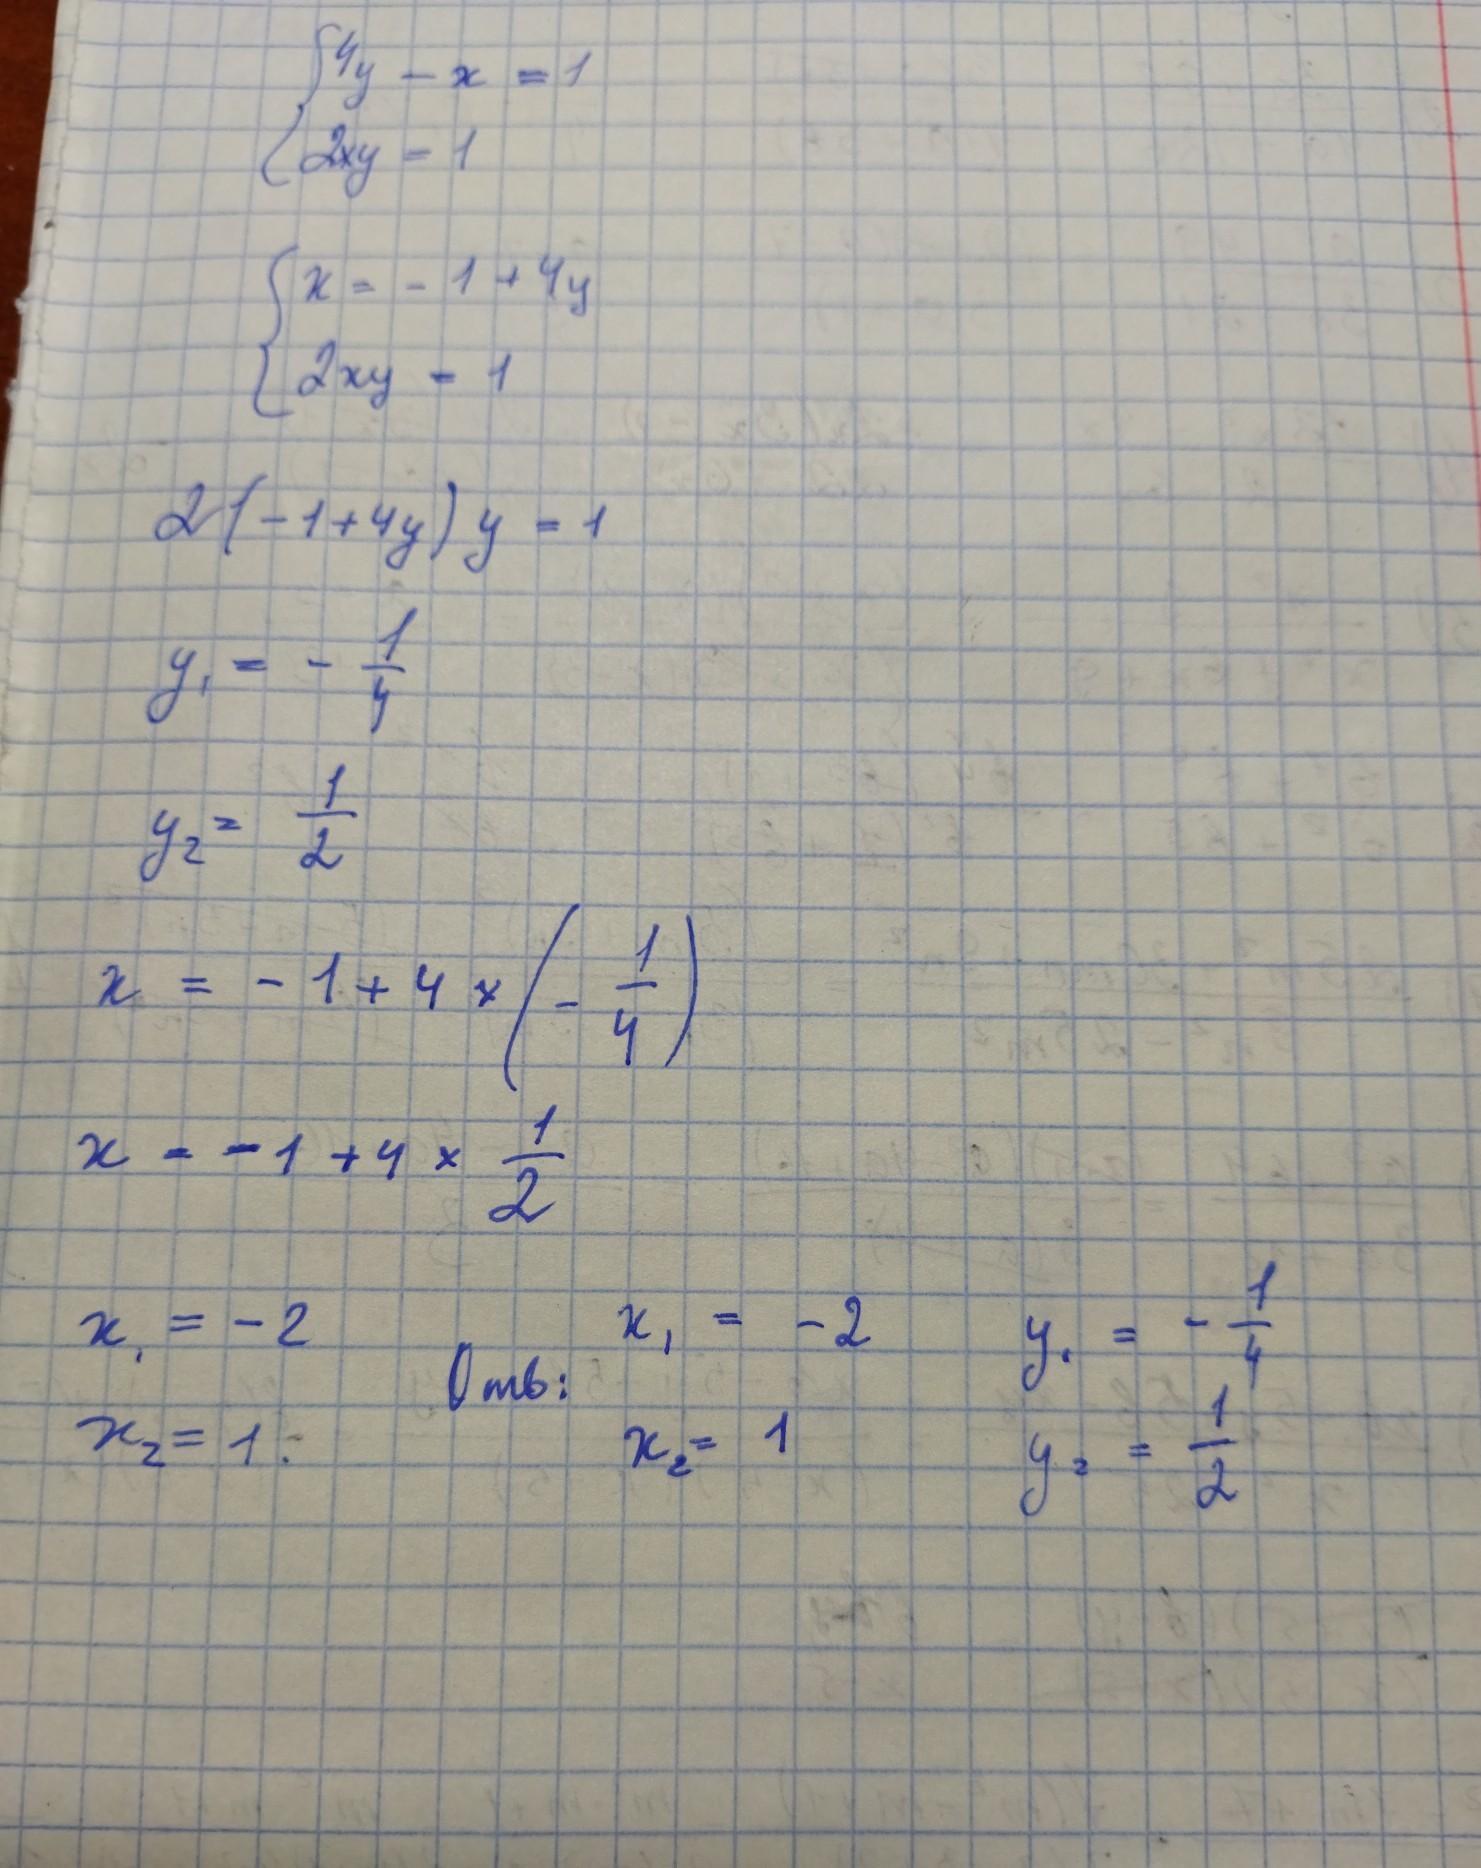 {4y - x = 1
{2xy = 1
{x = -1 + 4y
{2xy = 1
2(-1+4y)y = 1
y₁ = - 1/4
y₂ = 1/2
x = -1 + 4 × (- 1/4)
x = -1 + 4 × 1/2
x₁ = -2
x₂ = 1.
Отв:
x₁ = -2 y₁ = - 1/4
x₂ = 1 y₂ = 1/2